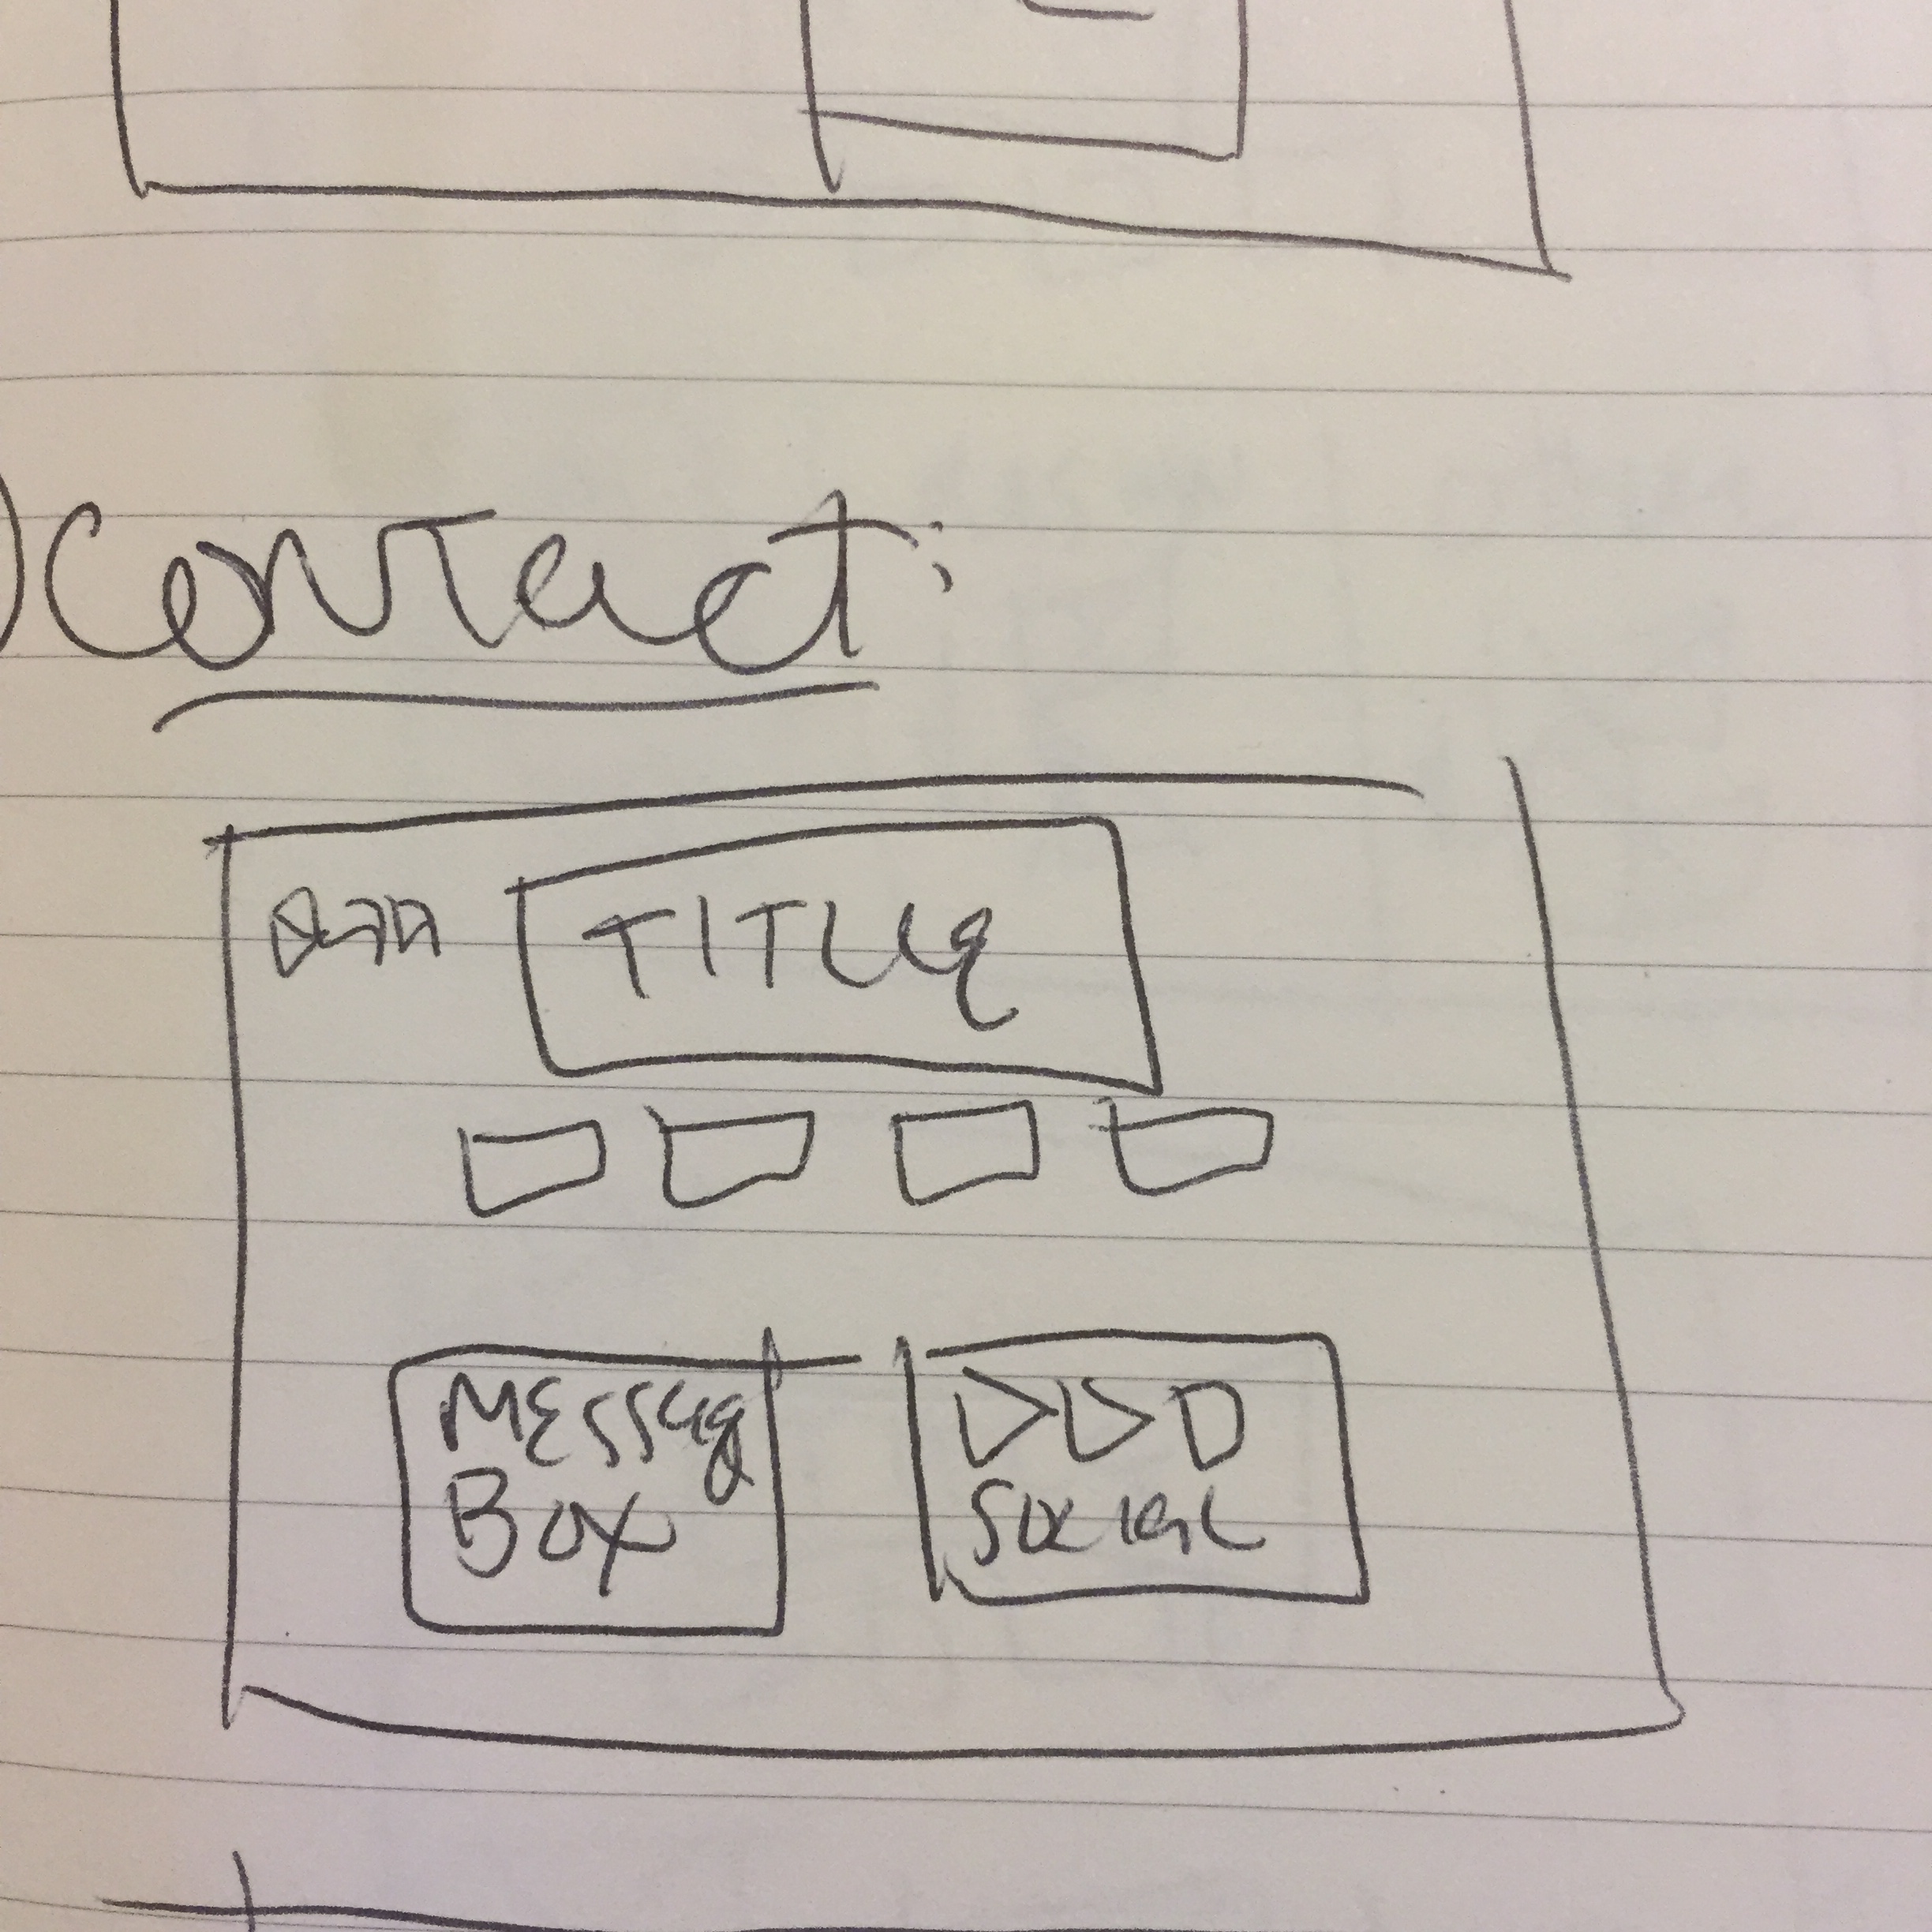 Contact:
TITLE
Message
Box
Social